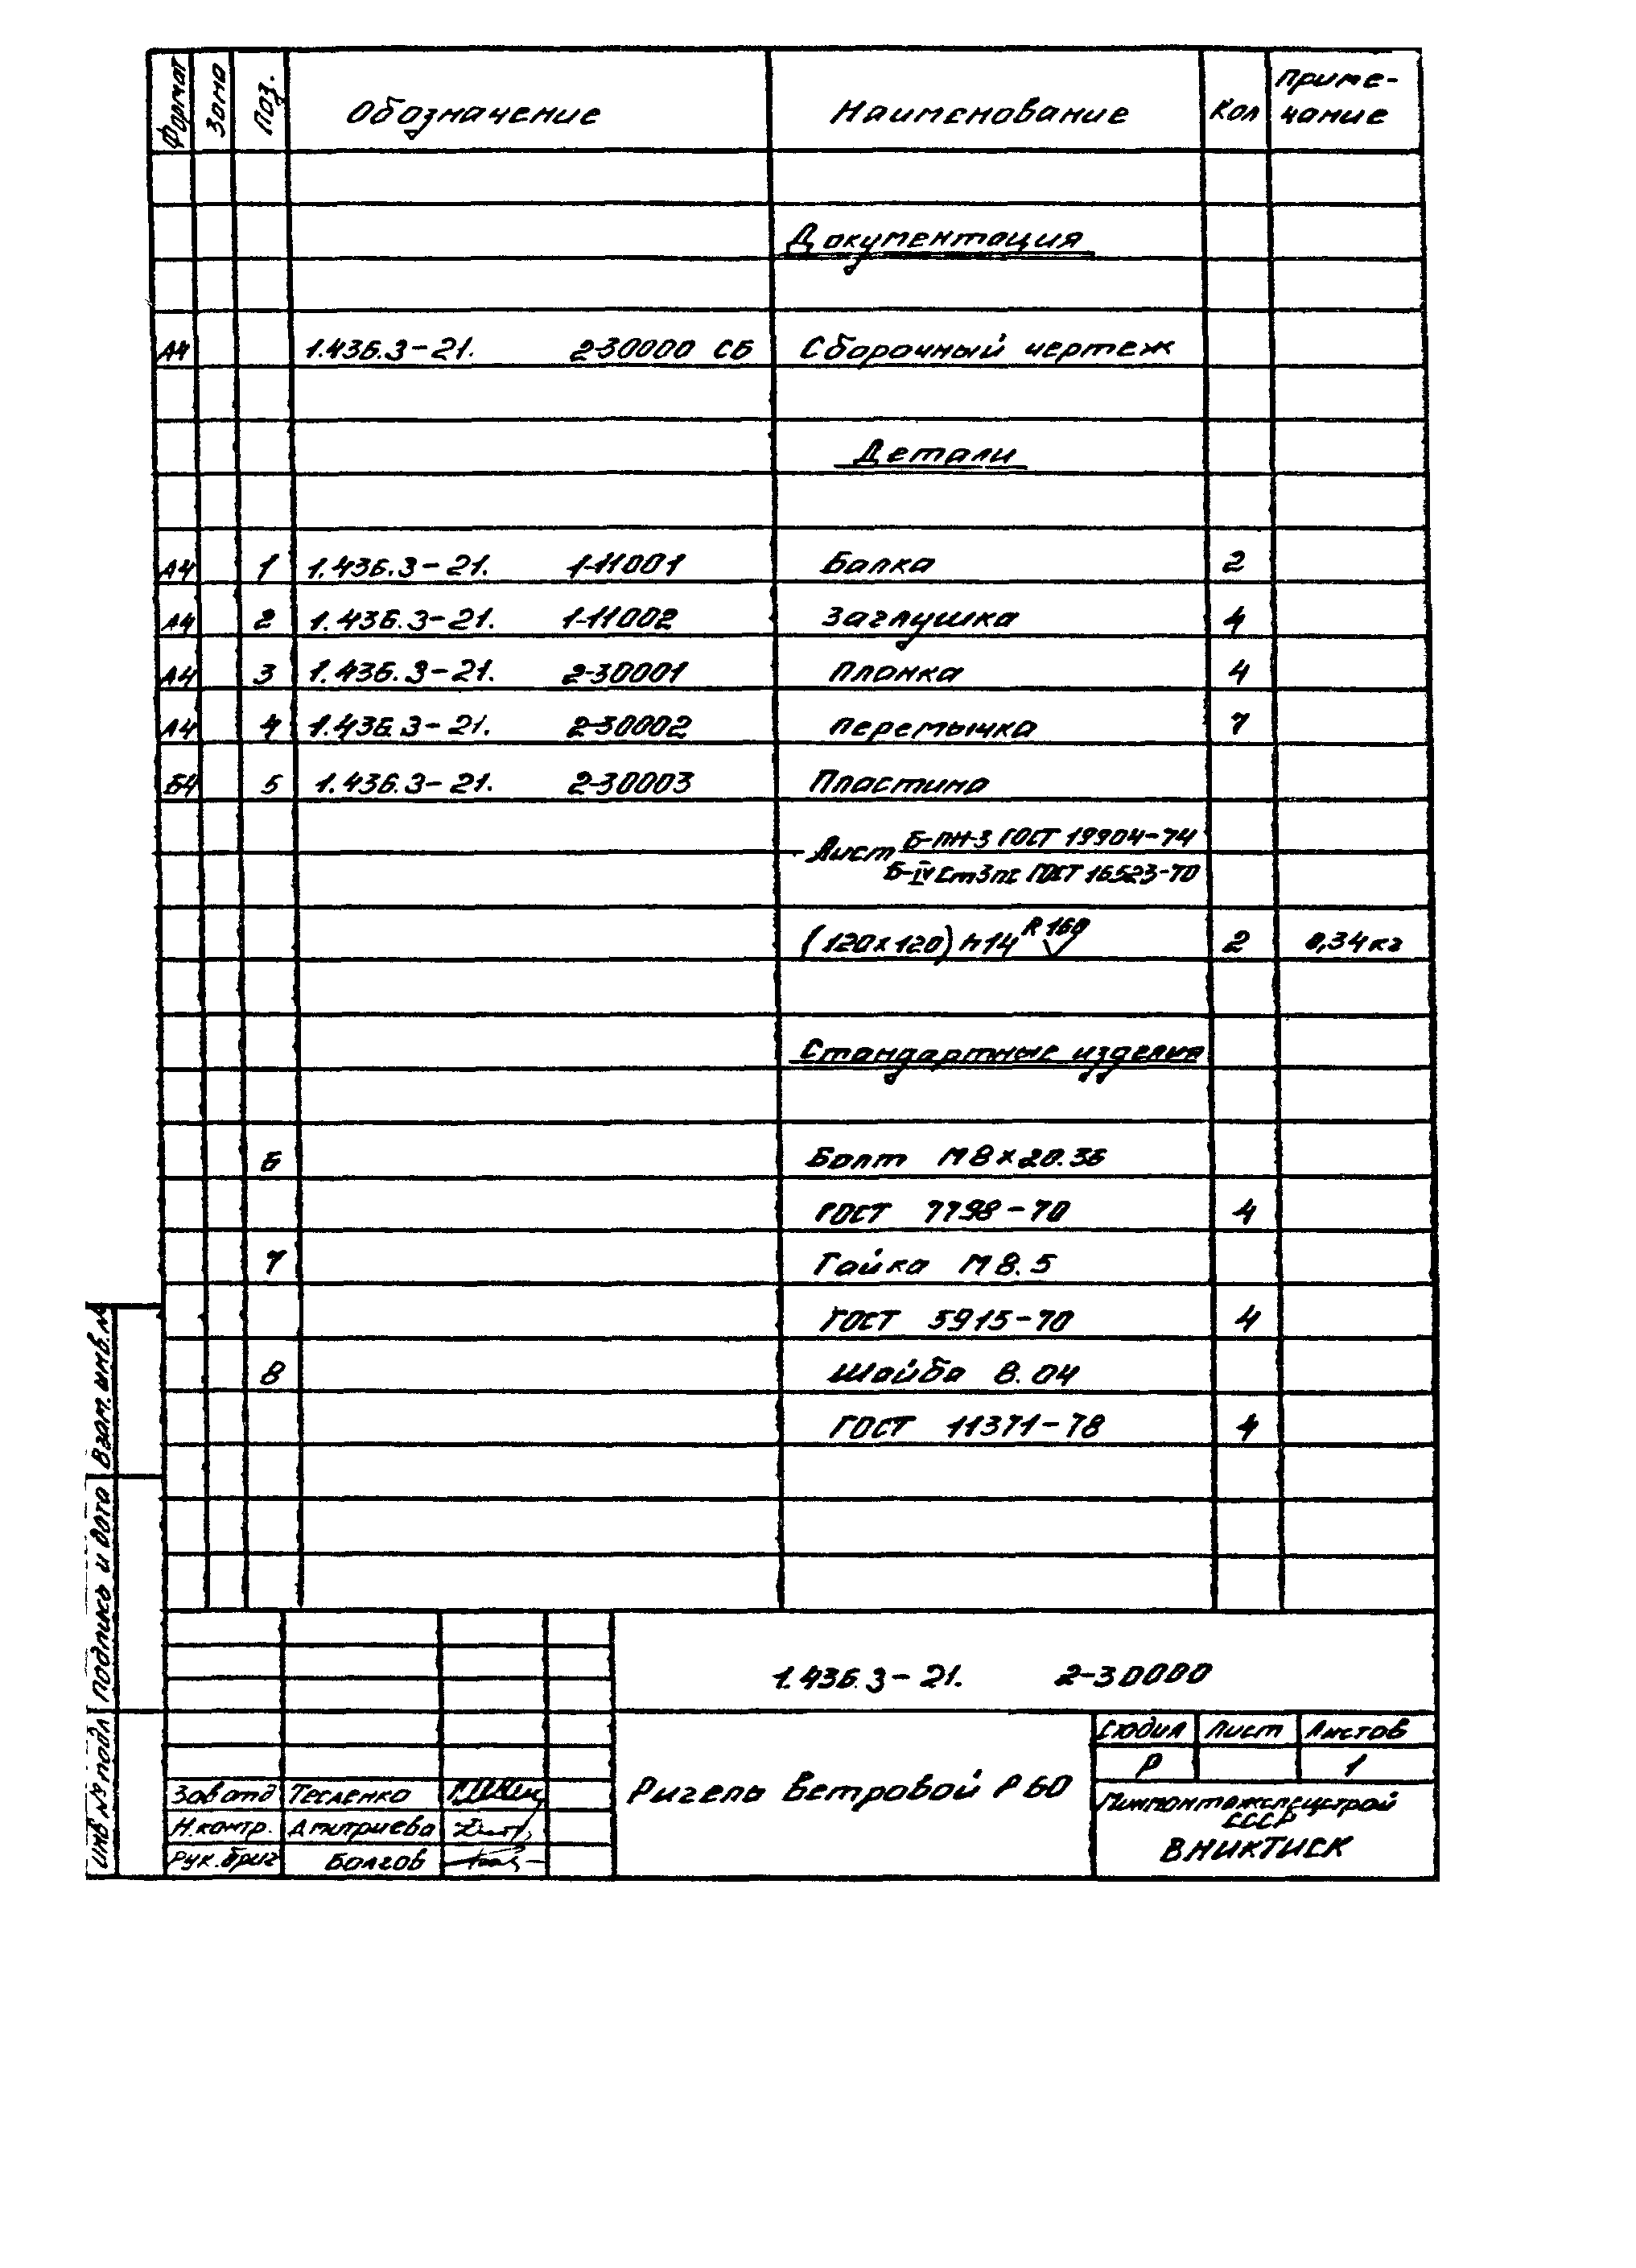 Формат Зона Поз. Обозначение Наименование Кол Приме-
чание
Документация
А4 1.436.3-21. 2-30000 СБ Сборочный чертеж
Детали
А4 1 1.436.3-21. 1-11001 Балка 2
А4 2 1.436.3-21. 1-11002 Заглушка 4
А4 3 1.436.3-21. 2-30001 Планка 4
А4 4 1.436.3-21. 2-30002 Перемычка 7
Б4 5 1.436.3-21. 2-30003 Пластина
Лист Б-ПН-3 ГОСТ 19904-74
Б-IV Ст3пс ГОСТ 16523-70
(120х120) h14 R 160 2 0,34кг
Стандартные изделия
6 Болт М8х20.36
ГОСТ 7798-70 4
7 Гайка М8.5
ГОСТ 5915-70 4
8 Шайба 8.04
ГОСТ 11371-78 4
Взам. инв. №
Подпись и дата
Инв № подл
1.436.3-21. 2-30000
Стадия Лист Листов
Р 1
Ригель ветровой Р60
Зав отд Тесленко
Н.контр. Дмитриева
Рук.бриг Болгов
Минмонтажспецстрой
СССР
ВНИКТИСК